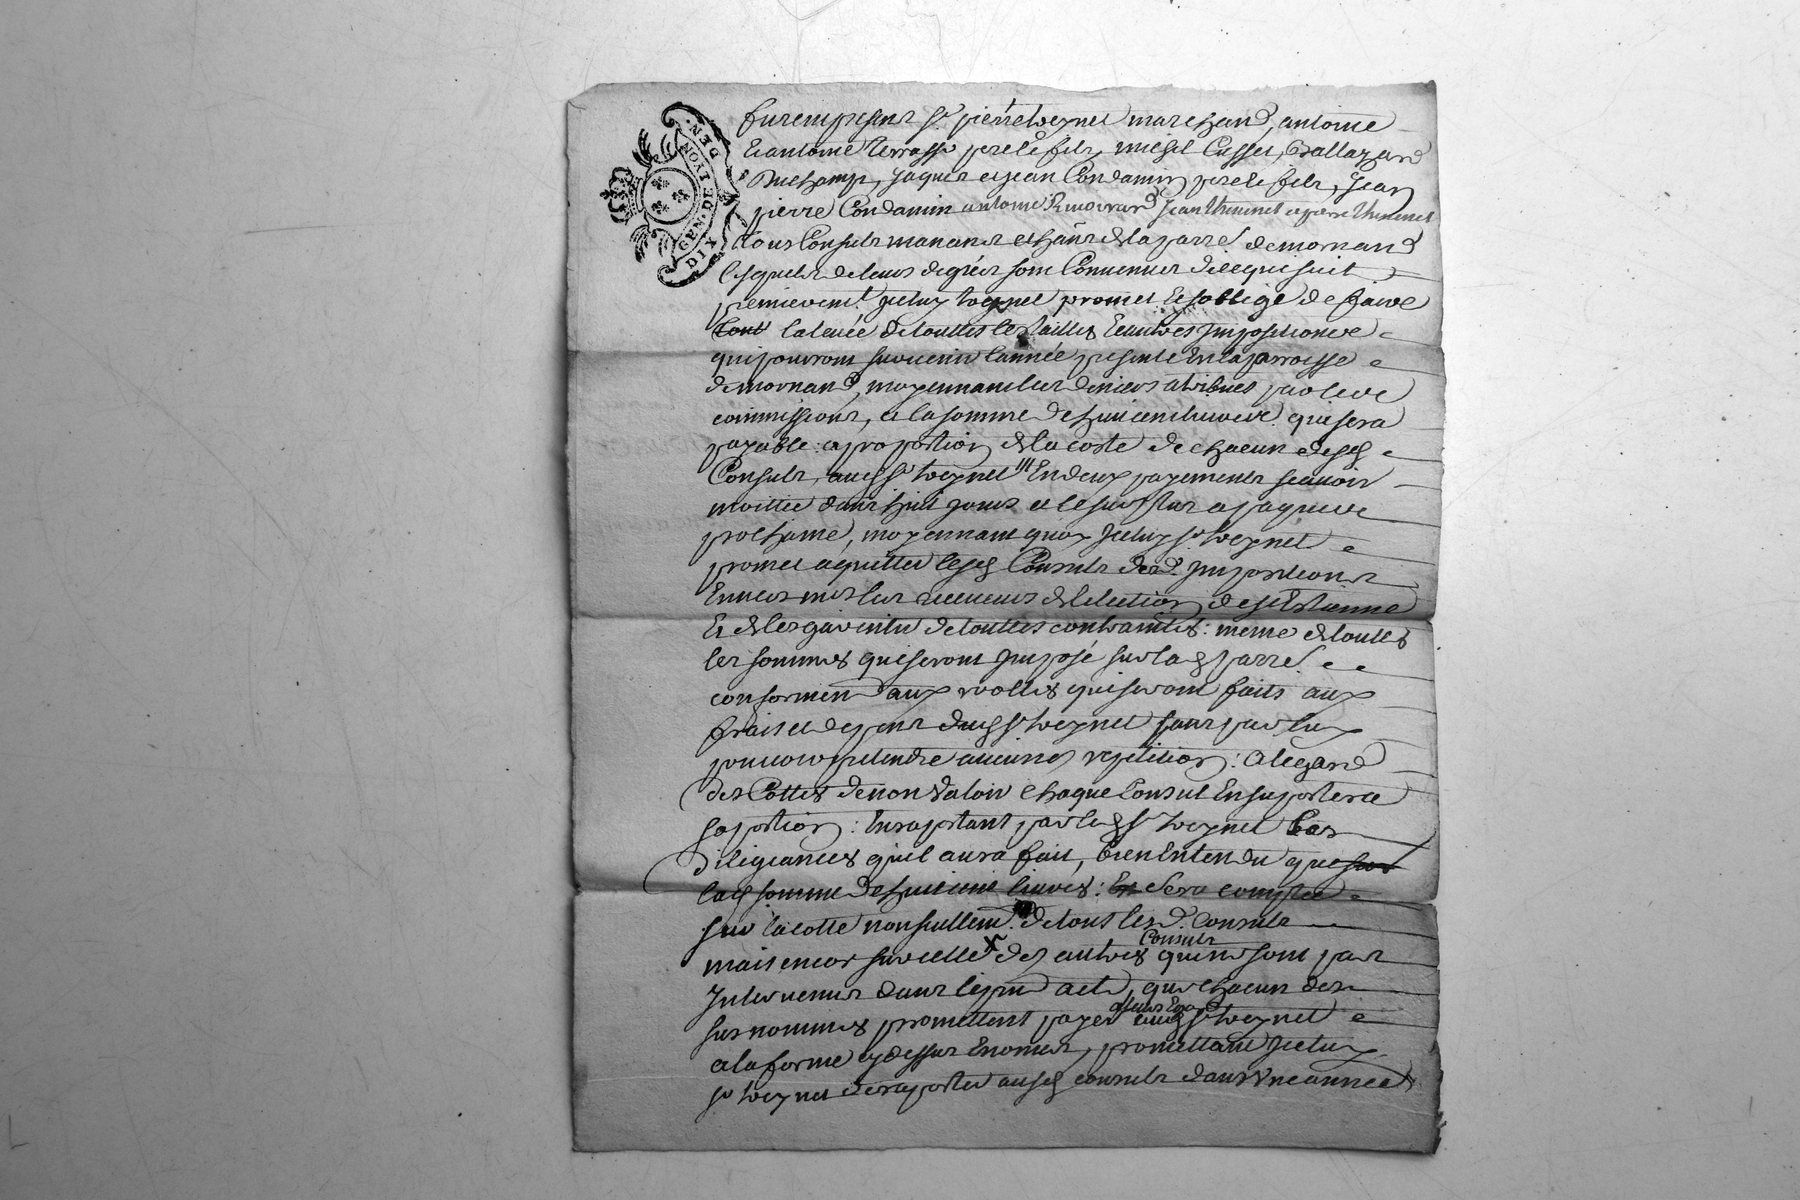 DIX DEN.
GEN. DE LYON
furent presens sr. pierre veynet marchand, antoine
et antoine terrasse pere et fils, michel Cusset, Baltazard
Duchamp, Jaques et jean Condamin pere et fils, jean
pierre Condamin antoine Jean Thiminet et pierre Thiminet
tous Consuls manans et habns de la parre. de mornand
lesquels de leurs degrées sont Convenues de ce qui suit
premierement. iceluy veynet promet et soblige de faire
la levée de touttes les tailles et autres Impositions
qui pouront survenir lannée presente en la parroisse
de mornand, moyennant les deniers atribues par les
commissions, et la somme de huit cent livres qui sera
payable a proportion de la coste de chacun desd
Consuls, aud sr veynet En deux payements scavoir
moittie dans huit jours et le surplus a paques
prochaine, moyennant quoy iceluy sr veynet
promet aquitter lesd Consuls desd. Impositions
Envers mrs les receveurs de lelection de st Estienne
Et de les garentir de touttes contraintes: meme de touttes
les sommes qui seront Imposé sur lad parre.
conformem aux rolles qui seront faits aux
frais et depens dud sr veynet sans par luy
pouvoir pretendre aucunes repetition: a legard
des Cottes de non valoir chaque Consul En suportera
sa portion: En raportant par led sr veynet Les
diligiances quil aura fait, bien Entendu que
lad somme de huit cent livres: sera comptee
sur la cotte non seullem. de tous lesd. Consuls
mais encor sur celle des autres Consuls qui ne sont pas
Intervenus dans le pnt acte, que chacun des
susnommes promettent payer aud sr veynet
a la forme cy dessus Enoncé, promettant iceluy
sr veynet de raporter ausd consuls dans Une année